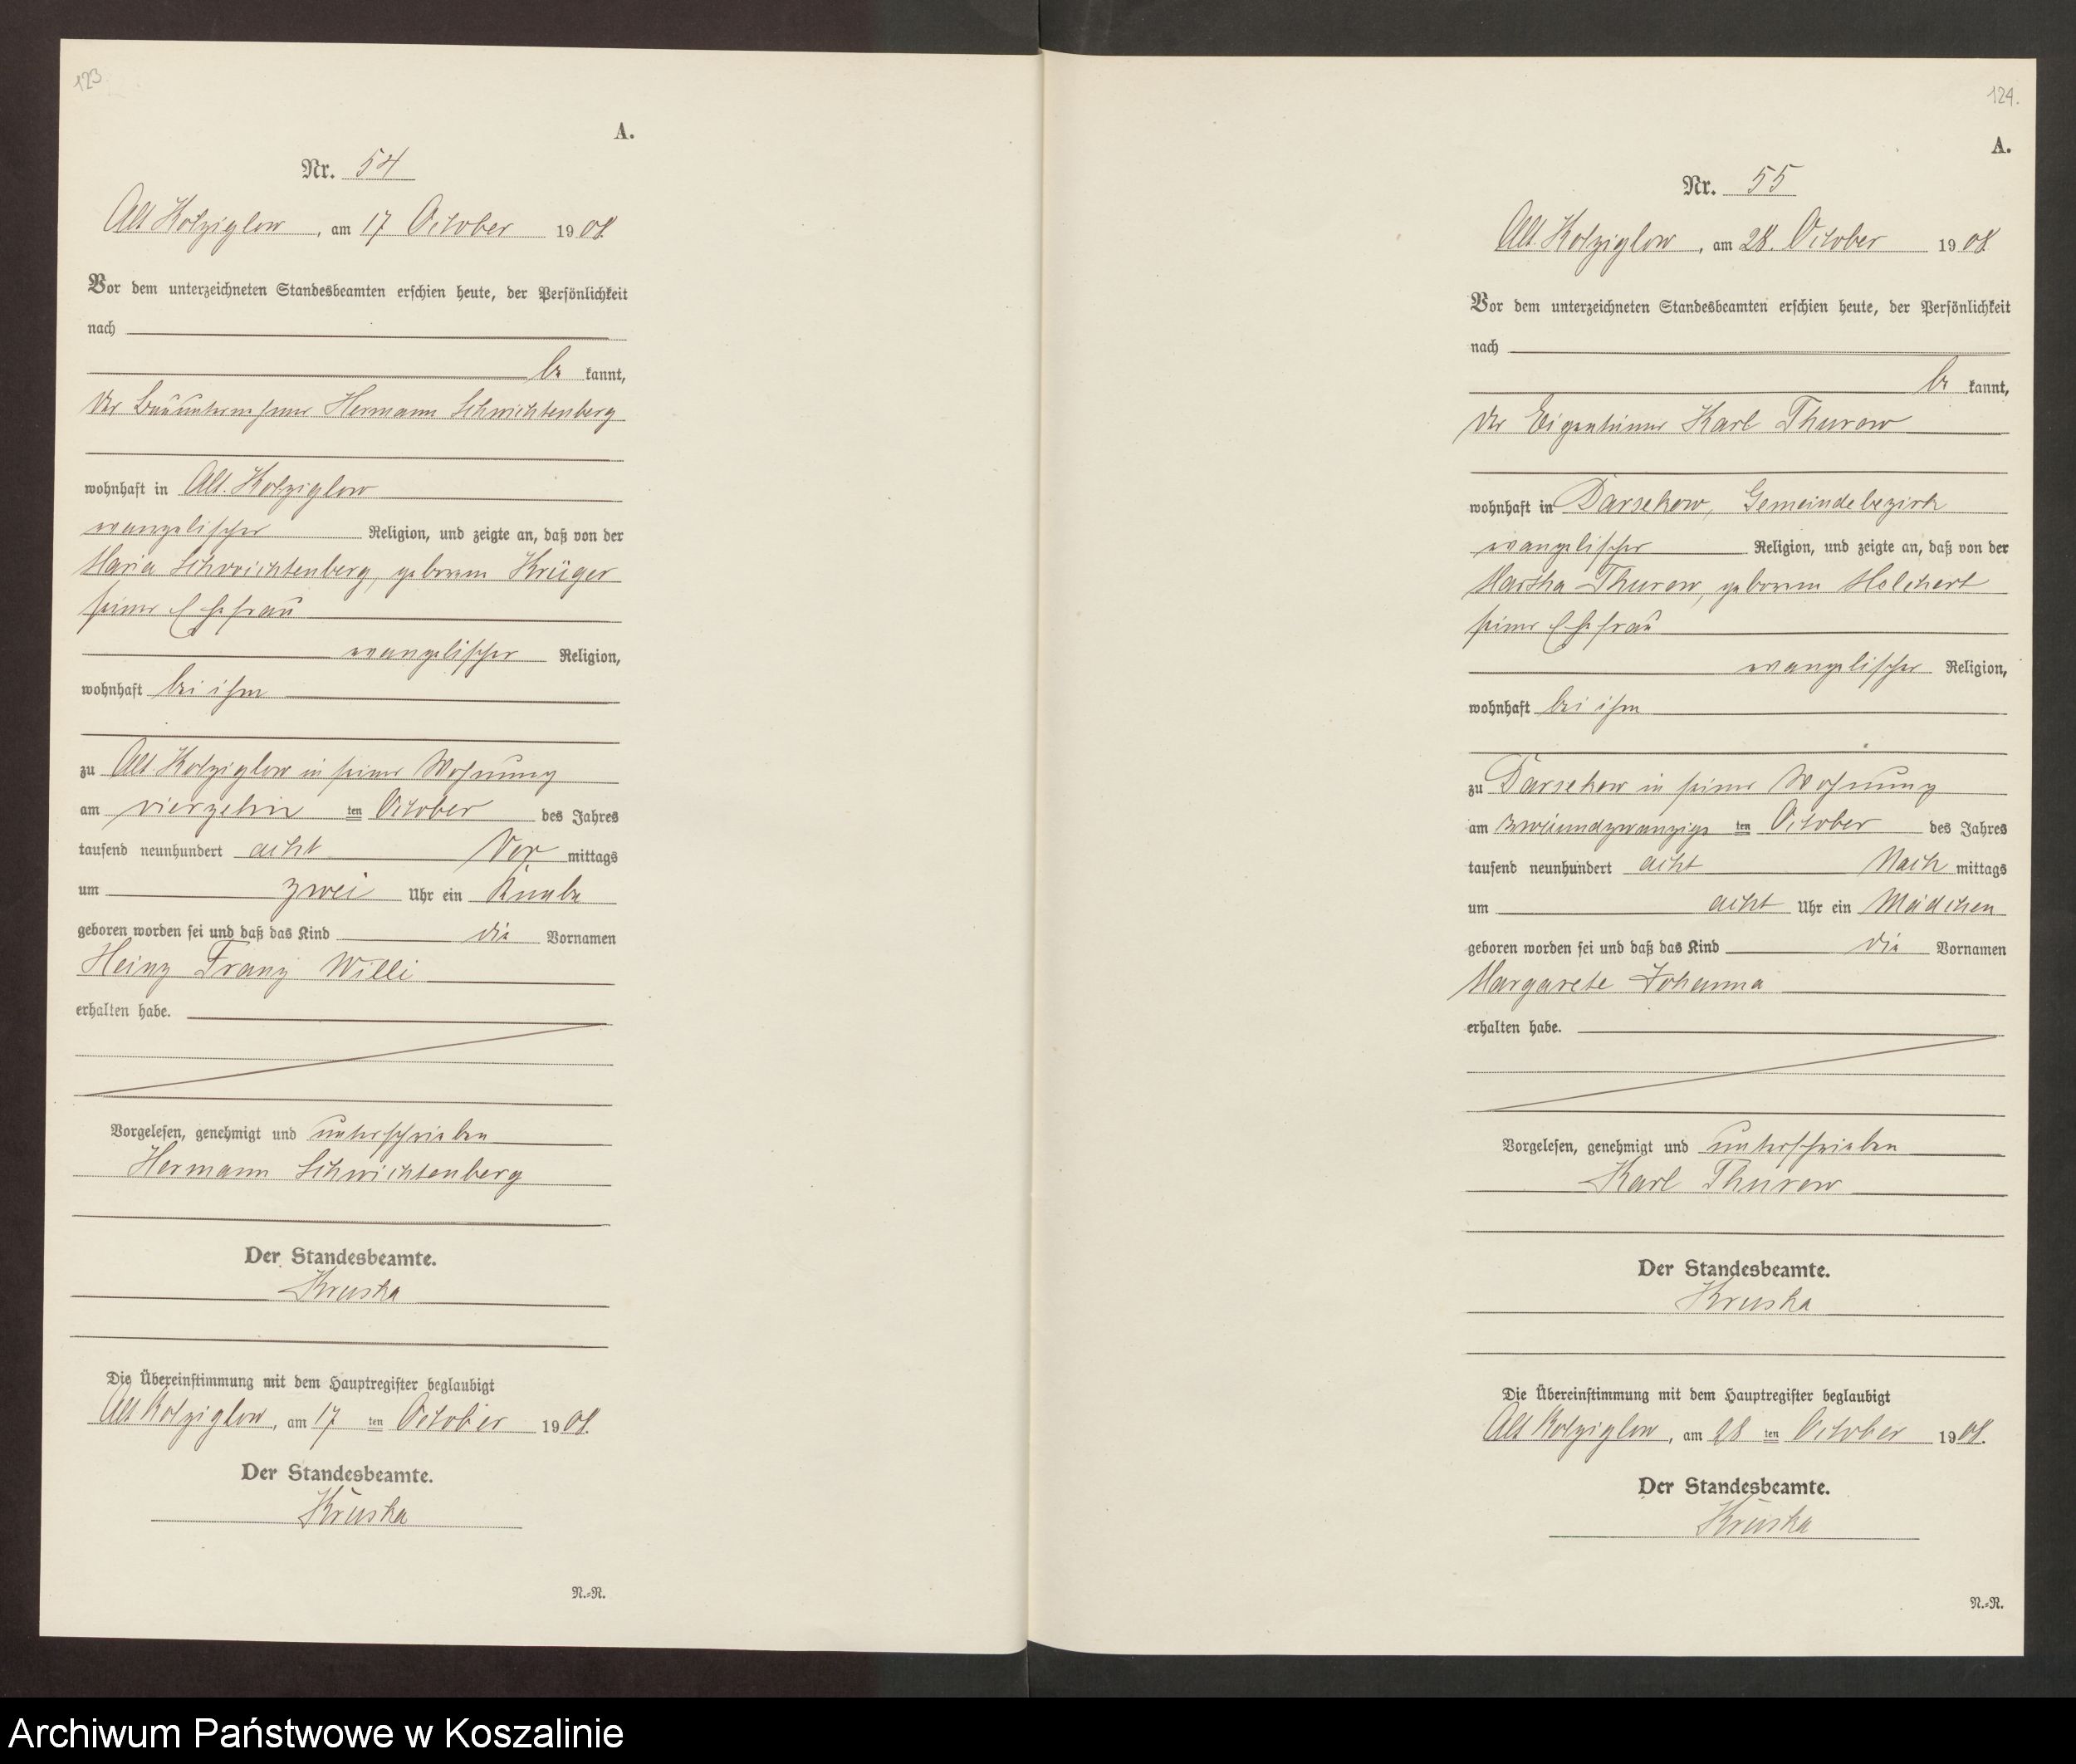 123.
A.
Nr. 54
Alt Kolziglow, am 17 October 1908.
Vor dem unterzeichneten Standesbeamten erschien heute, der Persönlichkeit
nach
be kannt,
der Bauunternehmer Hermann Schwichtenberg
wohnhaft in Alt. Kolziglow
evangelischer Religion, und zeigte an, daß von der
Maria Schwichtenberg, geborenen Krüger
seiner Ehefrau
evangelischer Religion,
wohnhaft bei ihm
zu Alt. Kolziglow in seiner Wohnung
am vierzehn ten October des Jahres
tausend neunhundert acht Vor mittags
um zwei Uhr ein Knabe
geboren worden sei und daß das Kind die Vornamen
Heinz Franz Willi
erhalten habe.
Vorgelesen, genehmigt und unterschrieben
Hermann Schwichtenberg
Der Standesbeamte.
Kruska
Die Übereinstimmung mit dem Hauptregister beglaubigt
Alt Kolziglow, am 17 ten October 1908.
Der Standesbeamte.
Kruska
N.=R.
124.
A.
Nr. 55
Alt. Kolziglow, am 28. October 1908
Vor dem unterzeichneten Standesbeamten erschien heute, der Persönlichkeit
nach
be kannt,
der Eigentümer Karl Thurow
wohnhaft in Darsekow, Gemeindebezirk
evangelischer Religion, und zeigte an, daß von der
Martha Thurow, geborenen Molchert
seiner Ehefrau
evangelischer Religion,
wohnhaft bei ihm
zu Darsekow in seiner Wohnung
am zweiundzwanzigs ten October des Jahres
tausend neunhundert acht Nach mittags
um acht Uhr ein Mädchen
geboren worden sei und daß das Kind die Vornamen
Margarete Johanna
erhalten habe.
Vorgelesen, genehmigt und unterschrieben
Karl Thurow
Der Standesbeamte.
Kruska
Die Übereinstimmung mit dem Hauptregister beglaubigt
Alt Kolziglow, am 28 ten October 1908.
Der Standesbeamte.
Kruska
N.=R.
Archiwum Państwowe w Koszalinie